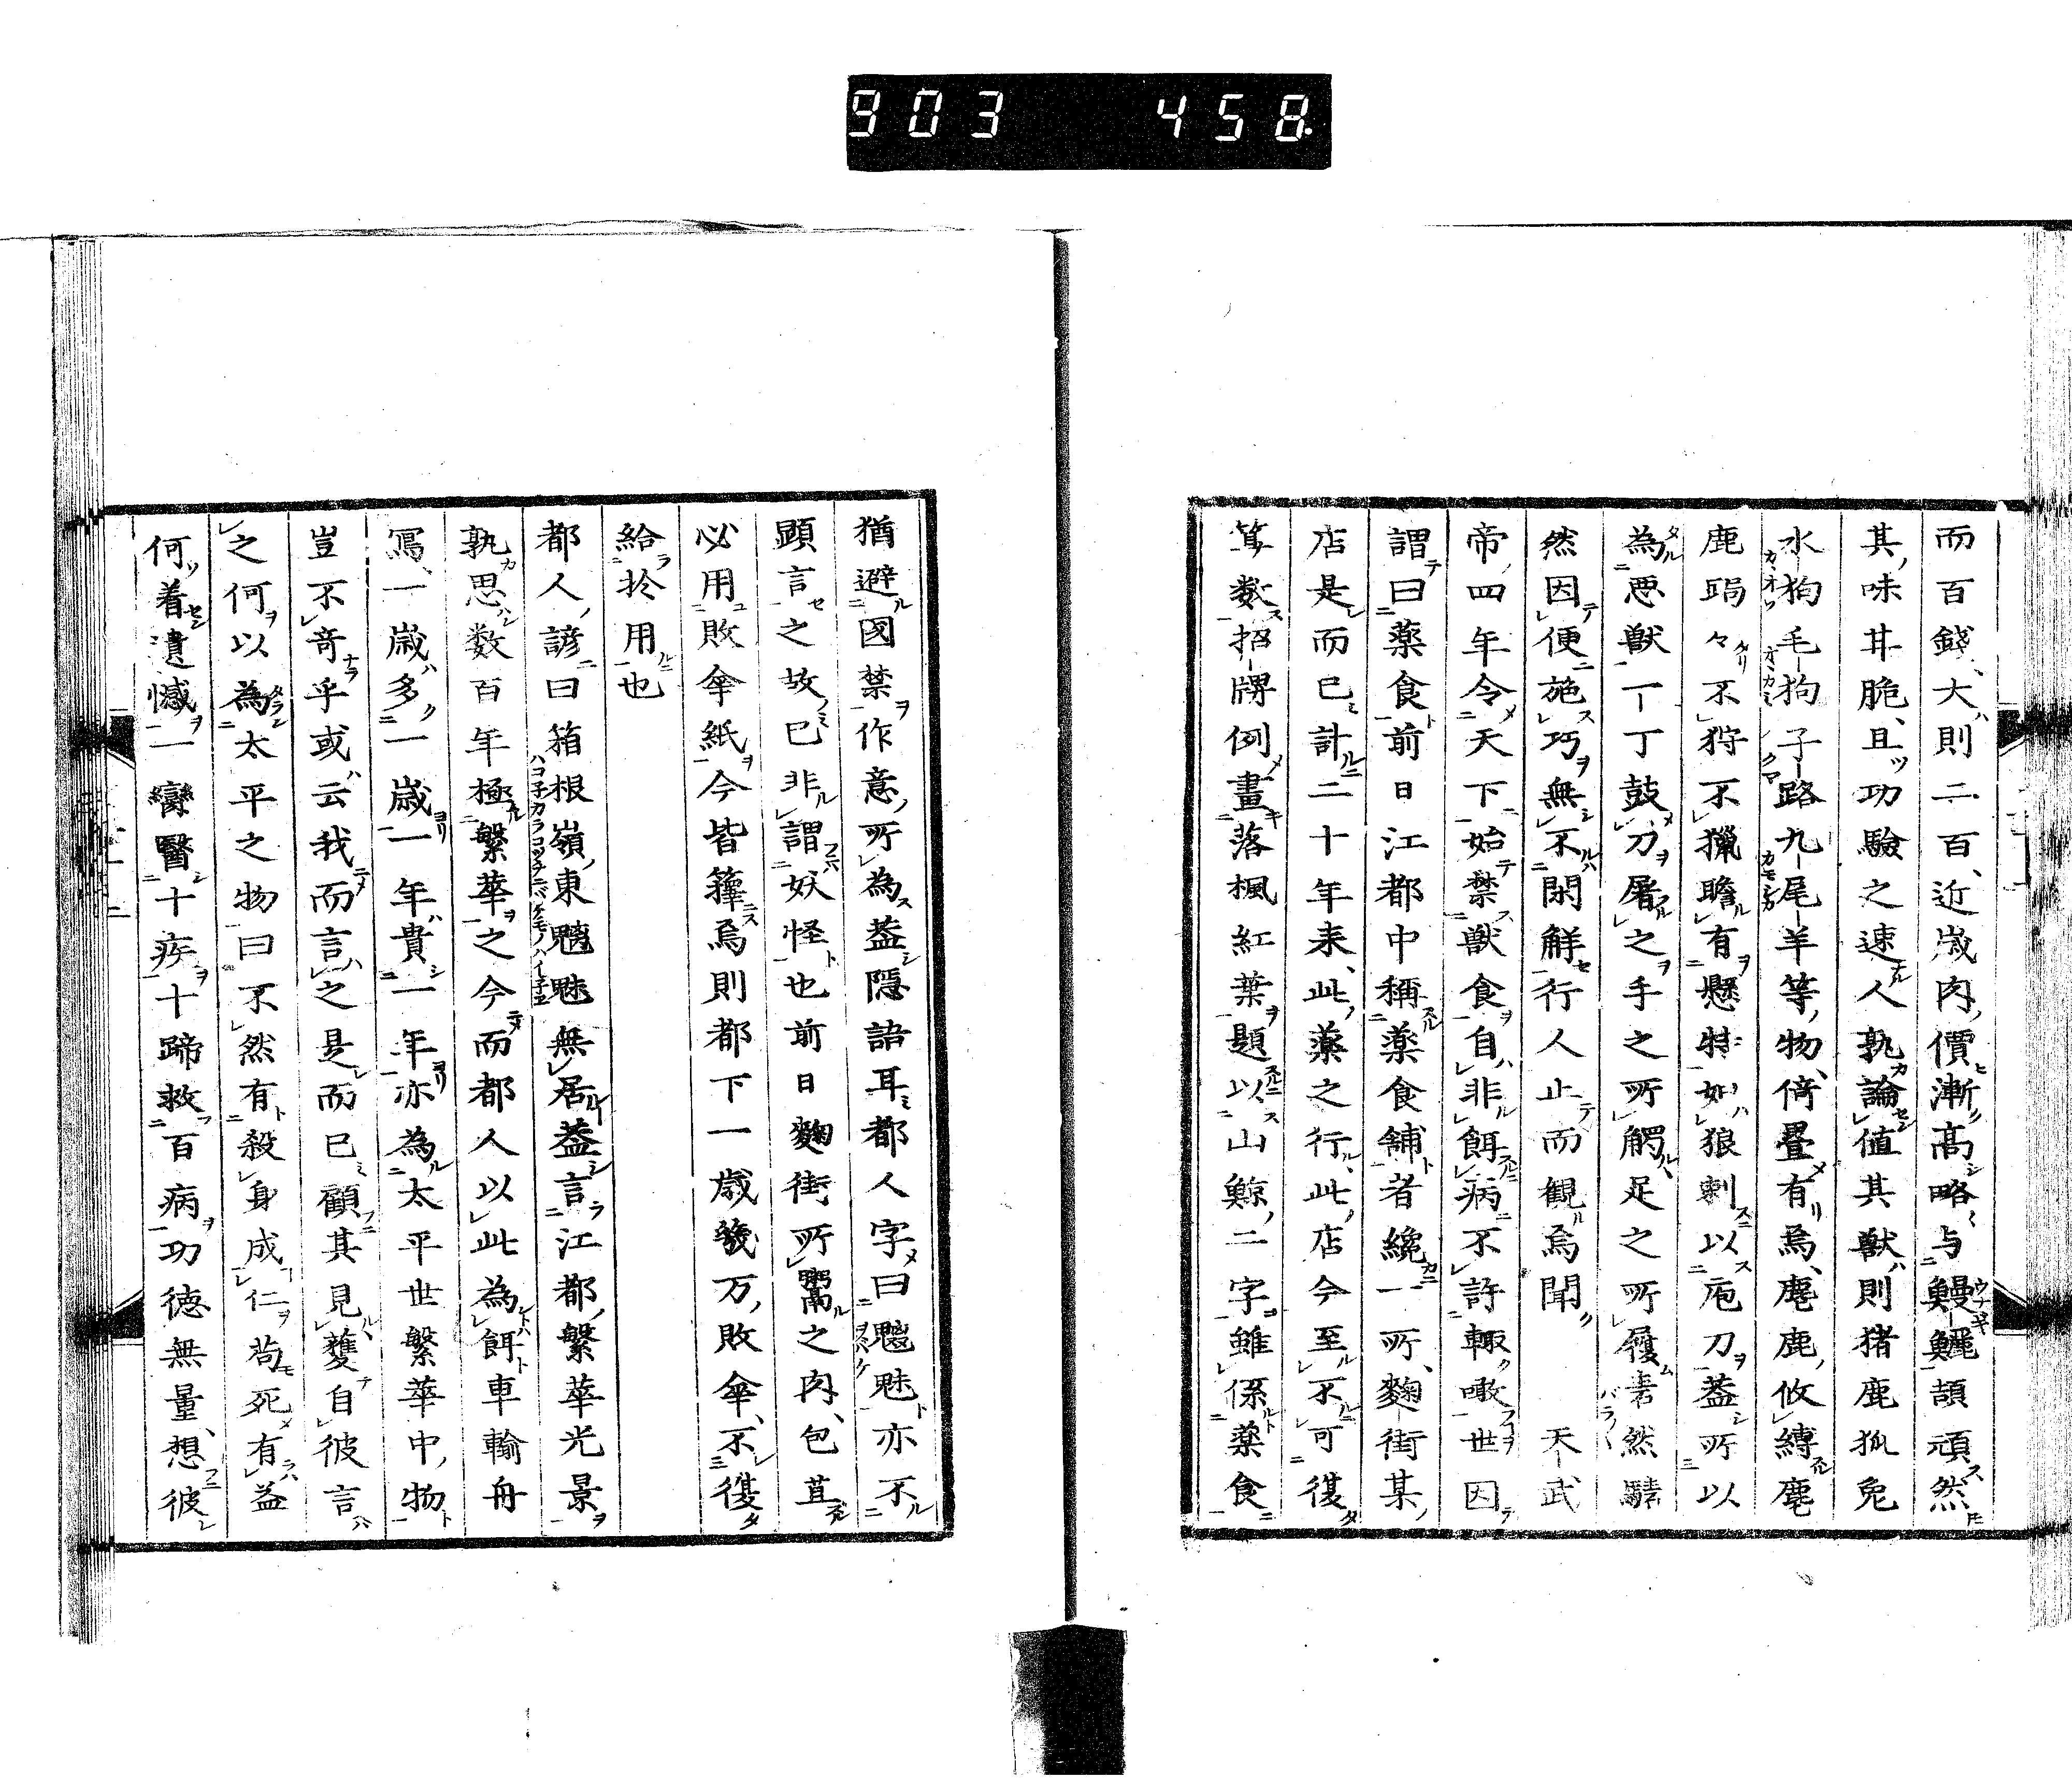 903 458
而百錢大則二百近歳肉價漸高略与鰻鱺頡頏然
其味甘脆且功驗之速人孰論值其獣則猪鹿狐兎
水狗毛狗子路九尾羊等物倚疊有焉麀鹿攸縛麀
鹿々不狩不獵瞻有懸特如狼刺以庖刀蓋所以
為悪獣一丁丁鼓刀屠之手之所觸足之所履砉然騞
然因便施巧無不閑觧行人止而観焉聞 天武
帝四年令天下始禁獣食自非餌病不許輙噉世因
謂曰薬食前日江都中稱薬食舗者纔一所麴街某
店是而已計二十年来此薬之行此店今至不可復
筭数招牌例畫落楓紅葉題以山鯨二字雖係薬食
猶避國禁作意所為蓋隠語耳都人字曰魑魅亦不
顕言之故已非謂妖怪也前日麴街所鬻之肉包苴
必用敗傘紙今皆籜焉則都下一歳幾万敗傘不復
給於用也
都人諺曰箱根嶺東魑魅無居蓋言江都繁華光景
孰思数百年極繁華之今而都人以此為餌車輸舟
寫一歳多一歳一年貴一年亦為太平世繁華中物
豈不竒乎或云我而言之是而已顧其見獲自彼言
之何以為太平之物曰不然有殺身成仁苟死有益
何着遺憾一臠醫十疾十蹄救百病功徳無量想彼